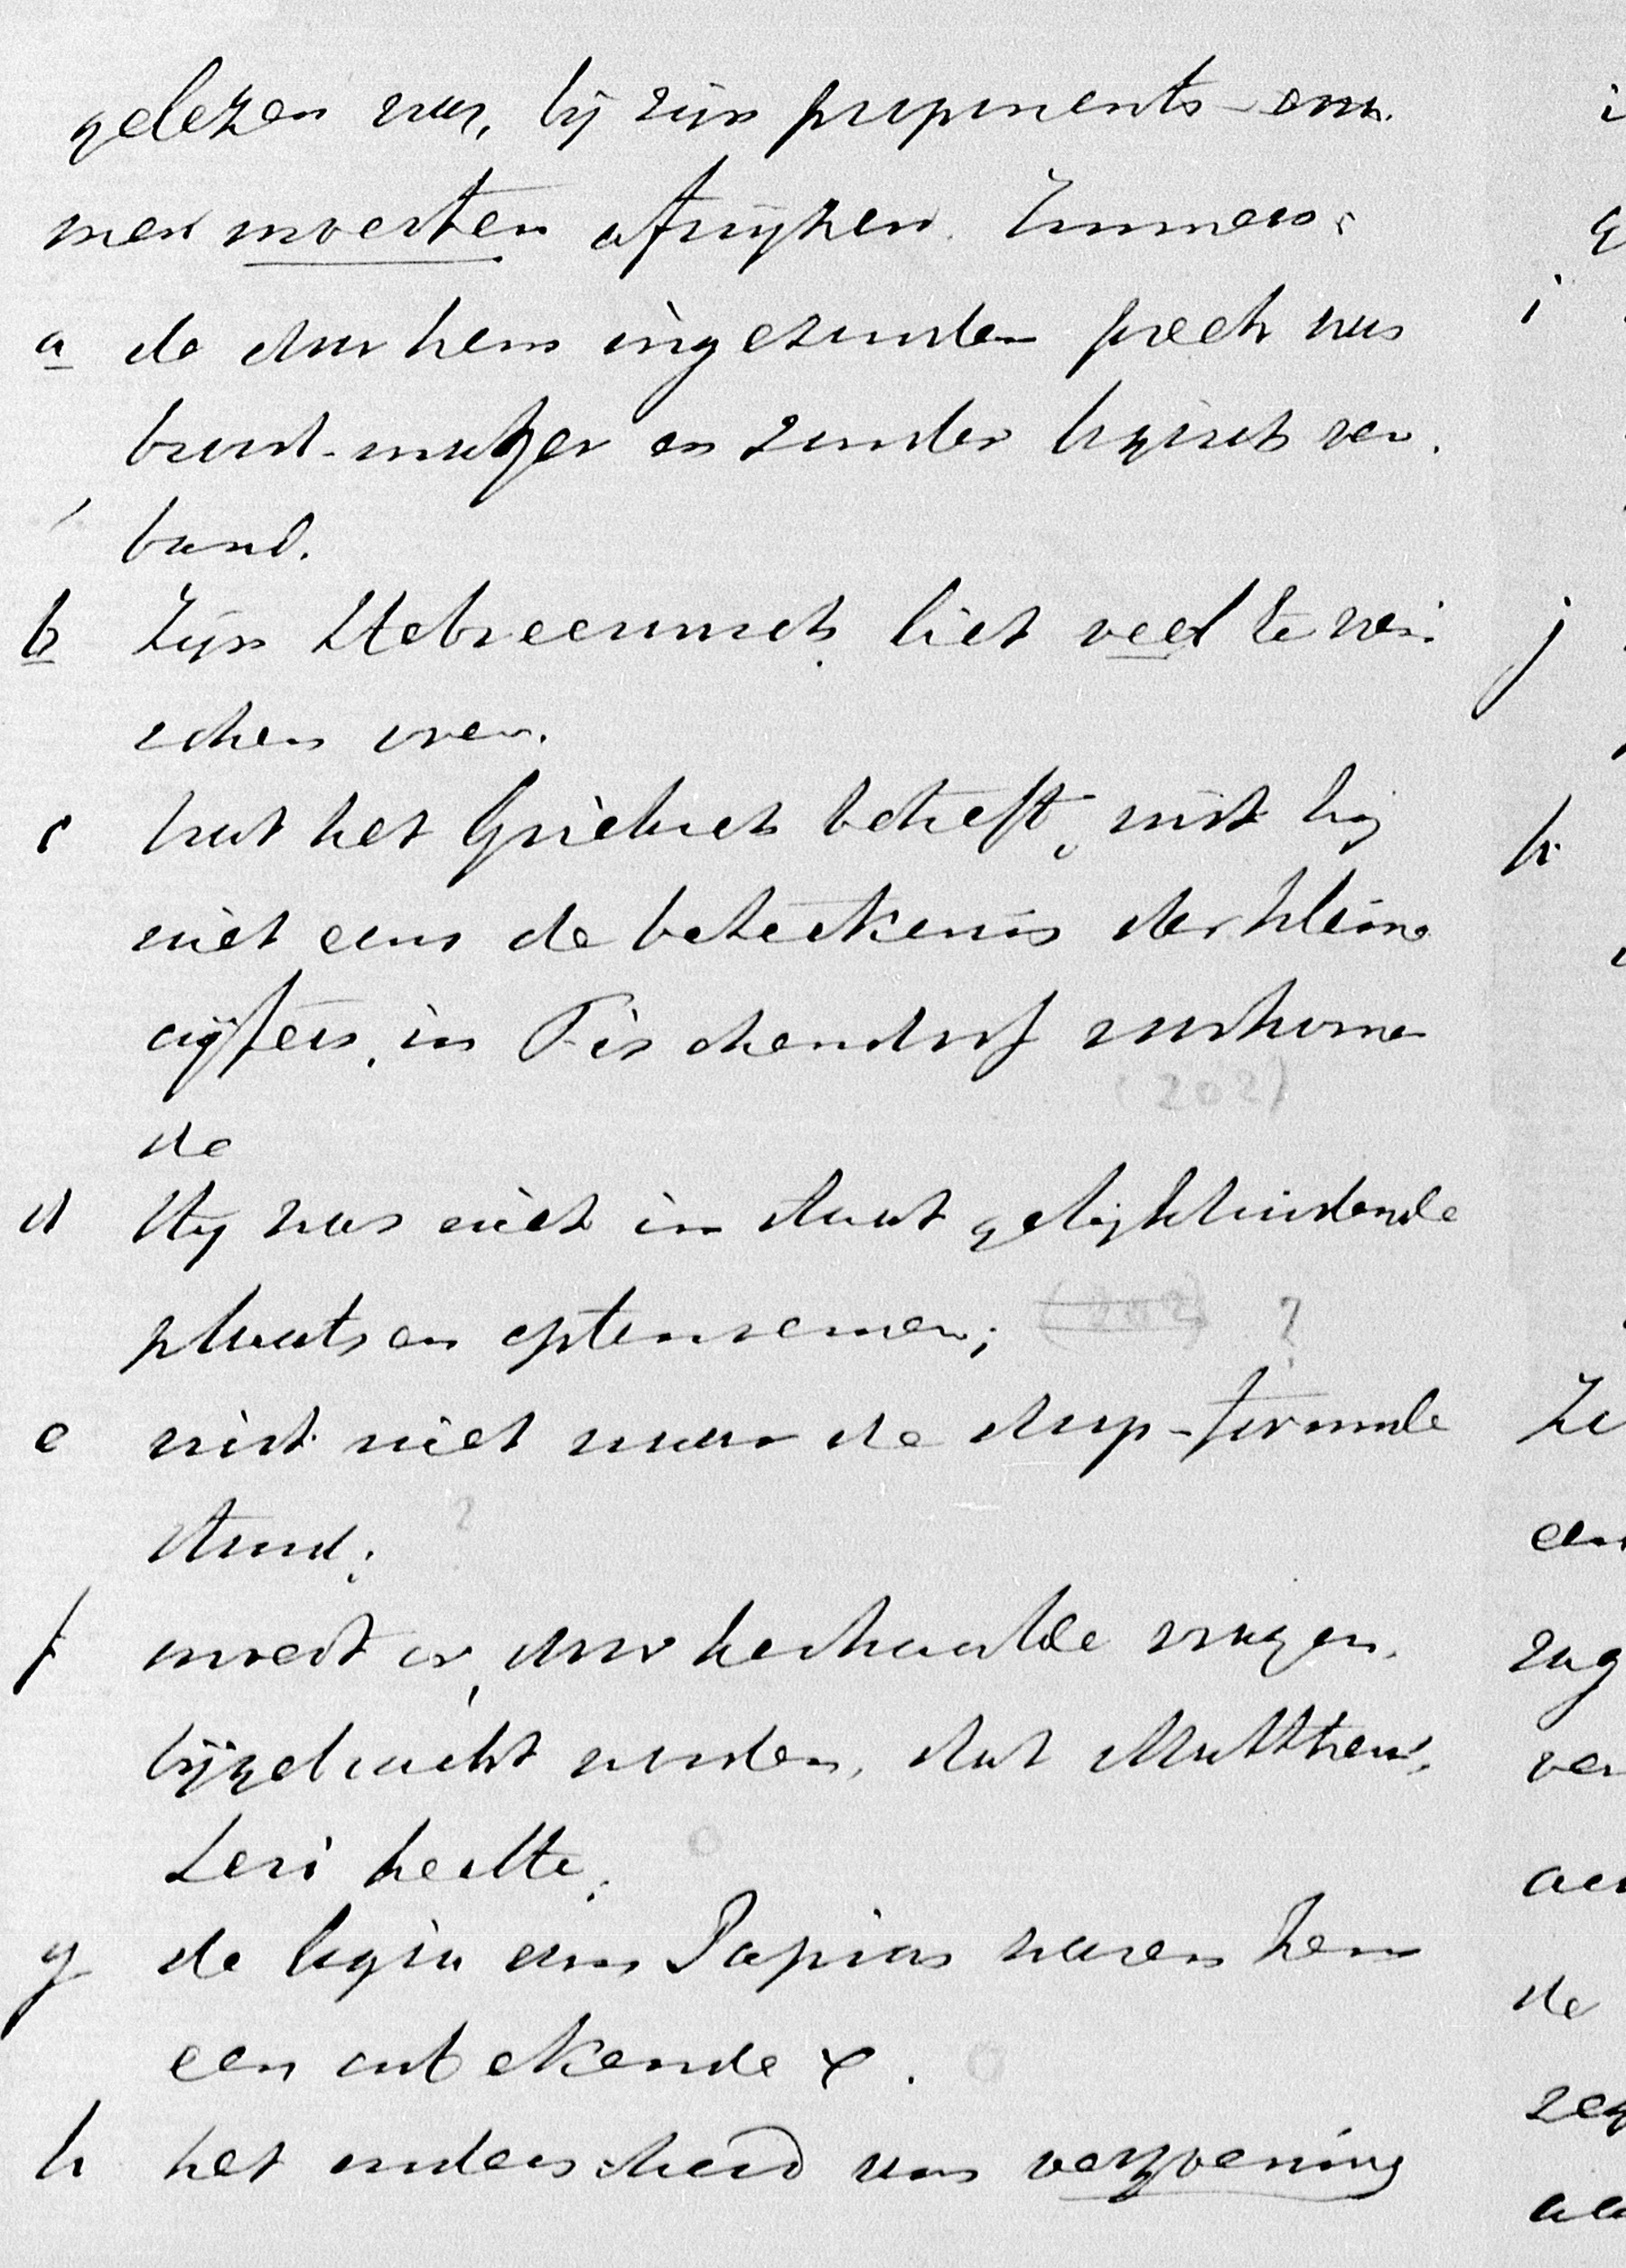 gelezen was, bij zijn proponents-exa-
men moesten afwijzen. Immers:
a de door hem ingezonden preek was
brood-mager en zonder logisch ver-
band.
b Zijn Hebreeuwsch liet veel te wen-
schen over.
c wat het Grieksch betreft, wist hij
niet eens de beteekenis der kleine
cijfers, in Tischendorf voorkomen
(202)
de
d Hij was niet in staat gelijkluidende
plaatsen optenoemen; (202) ?
e wist niet waar de doop-formule
stond; ?
f moest er, door herhaalde vragen,
bijgebracht worden, dat Mattheus,
Levi heette;
g de logia van Papias waren hem
een onbekende x.
h het onderscheid van verzoening
i
j
k
de